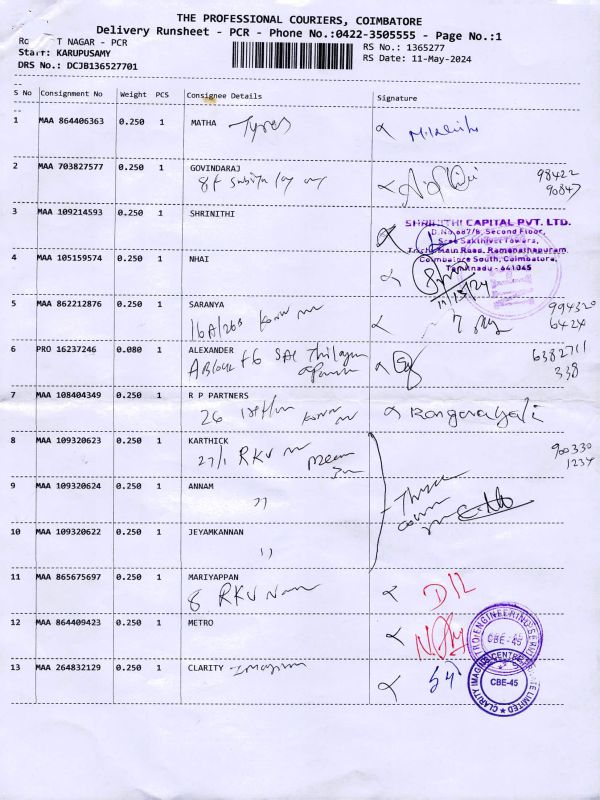 THE PROFESSIONAL COURIERS, COIMBATORE
Delivery Runsheet - PCR - Phone No.:0422-3505555 - Page No.:1
T NAGAR - PCR
RS No.: 1365277
Staff: KARUPUSAMY
RS Date: 11-May-2024
DRS No.: DCJB136527701
S No Consignment No Weight PCS Consignee Details Signature
1 MAA 864406363 0.250 1 MATHA Tyres
2 MAA 703827577 0.250 1 GOVINDARAJ
98422
90847
3 MAA 109214593 0.250 1 SHRINITHI
SHRINITHI CAPITAL PVT. LTD.
D.No.687/9, Second Floor,
Sree Sakthivel Towers,
Trichy Main Road, Ramanathapuram,
Coimbatore South, Coimbatore,
Tamilnadu - 641045
4 MAA 105159574 0.250 1 NHAI
11/5/24
5 MAA 862212876 0.250 1 SARANYA
16A/263
994320
6424
6 PRO 16237246 0.080 1 ALEXANDER
A Block F6 SAC Thilagam
6382711
338
7 MAA 108404349 0.250 1 R P PARTNERS
26
8 MAA 109320623 0.250 1 KARTHICK
27/1 RKV
900330
1234
9 MAA 109320624 0.250 1 ANNAM
"
10 MAA 109320622 0.250 1 JEYAMKANNAN
"
11 MAA 865675697 0.250 1 MARIYAPPAN
8 RKV
D/L
12 MAA 864409423 0.250 1 METRO
CBE-45
13 MAA 264832129 0.250 1 CLARITY Imaging
CLARITY IMAGING CENTRE PRIVATE LIMITED
CBE-45